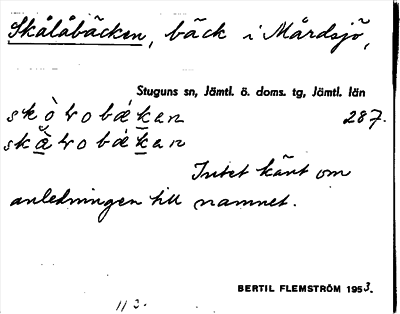 Skålåbäcken, bäck i Mårdsjö,
Stuguns sn, Jämtl. ö. doms. tg, Jämtl. län
287.
Intet känt om
anledningen till namnet.
BERTIL FLEMSTRÖM 1953.
113.